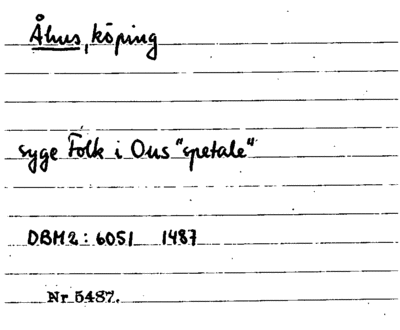 Åhus, köping
syge Folk i Ous "spetale"
DBM2: 6051 1487
Nr 5487.